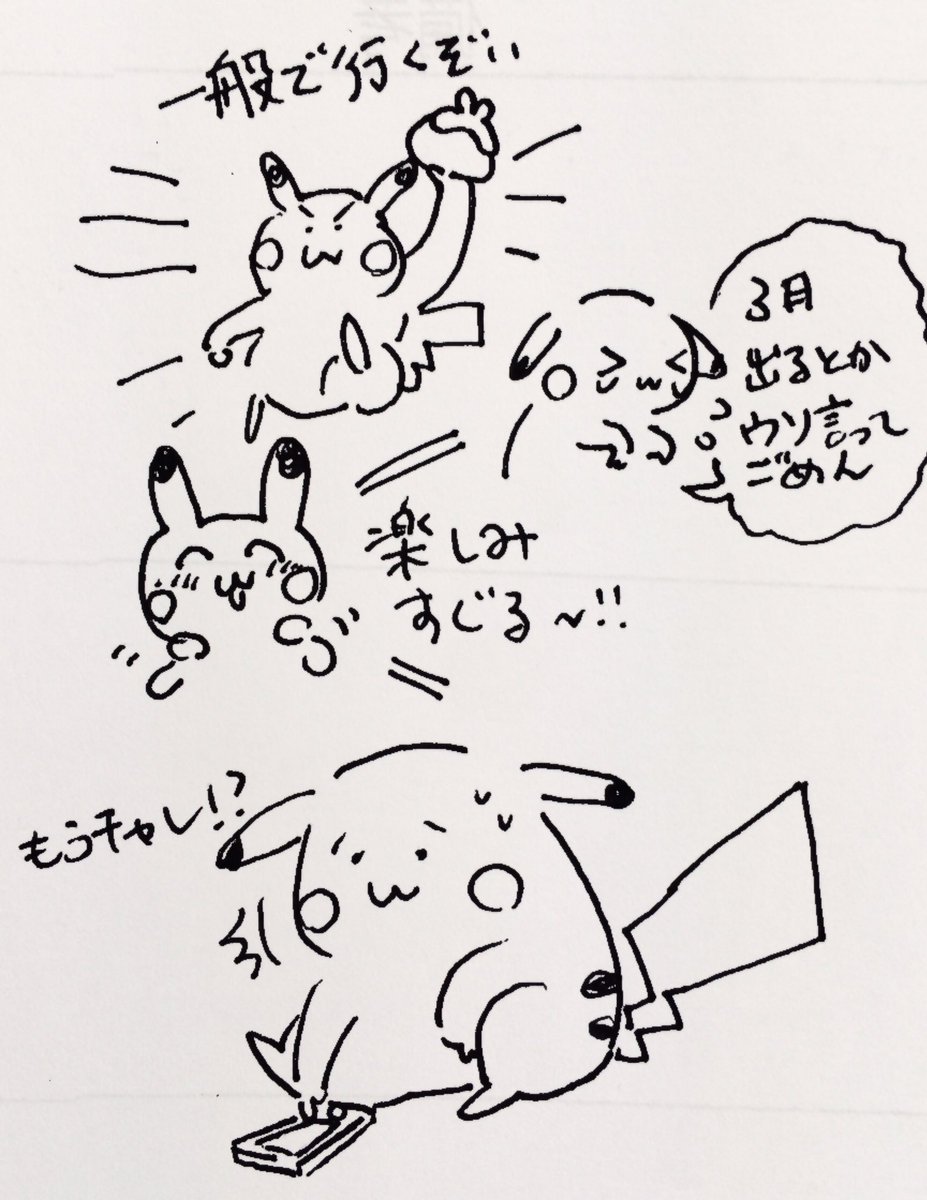 一般で行くぞい
3月
出るとか
ウソ言って
ごめん
楽しみ
すぎる〜!!
もうチャレ!?